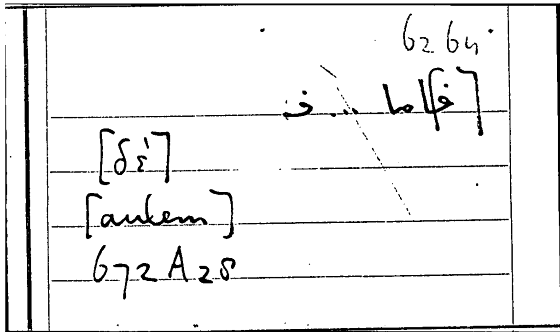 62
[فاما ... ف
[δέ]
[autem]
672A28